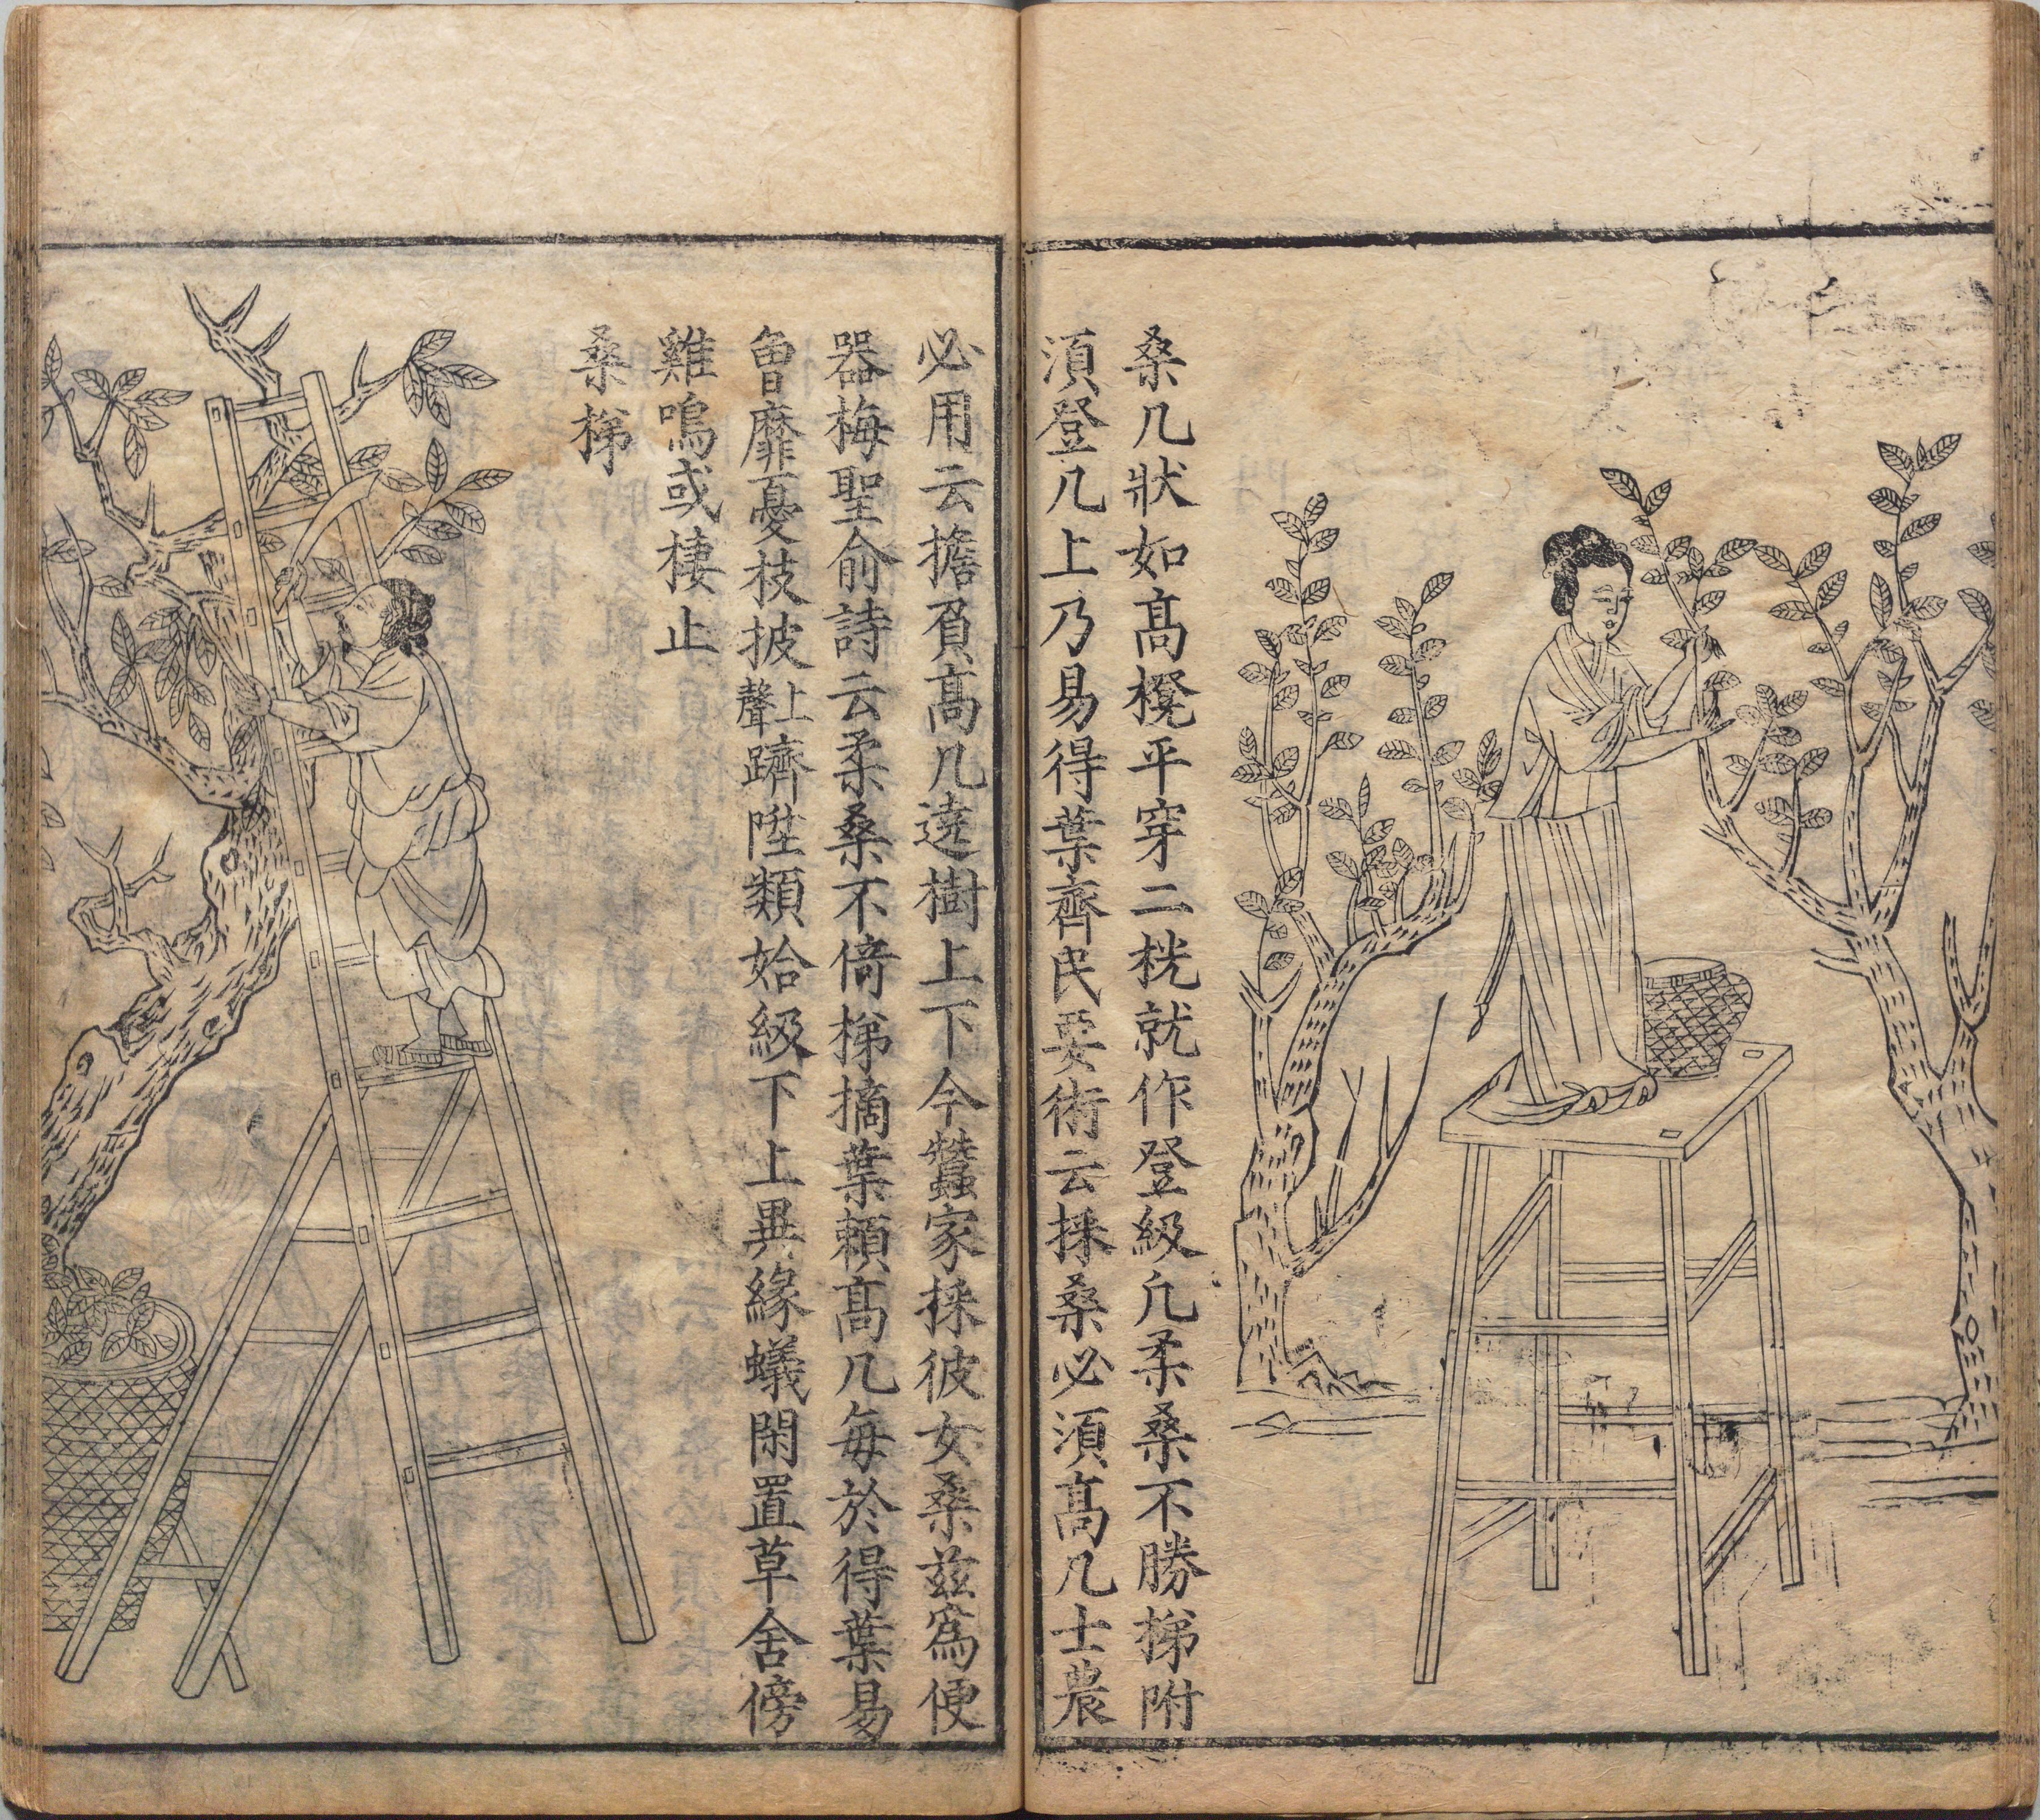 桑几狀如高櫈平穿二桄就作登級凢柔桑不勝梯附
湏登几上乃易得葉齊民要術云採桑必湏高几士農
必用云擔負高几遶樹上下今蠶家採彼女桑兹為便
器梅聖俞詩云柔桑不倚梯摘葉頼高几每於得葉易
曾靡憂枝披上聲躋陞類拾級下上異緣蟻閑置草舍傍
雞鳴或棲止
桑梯